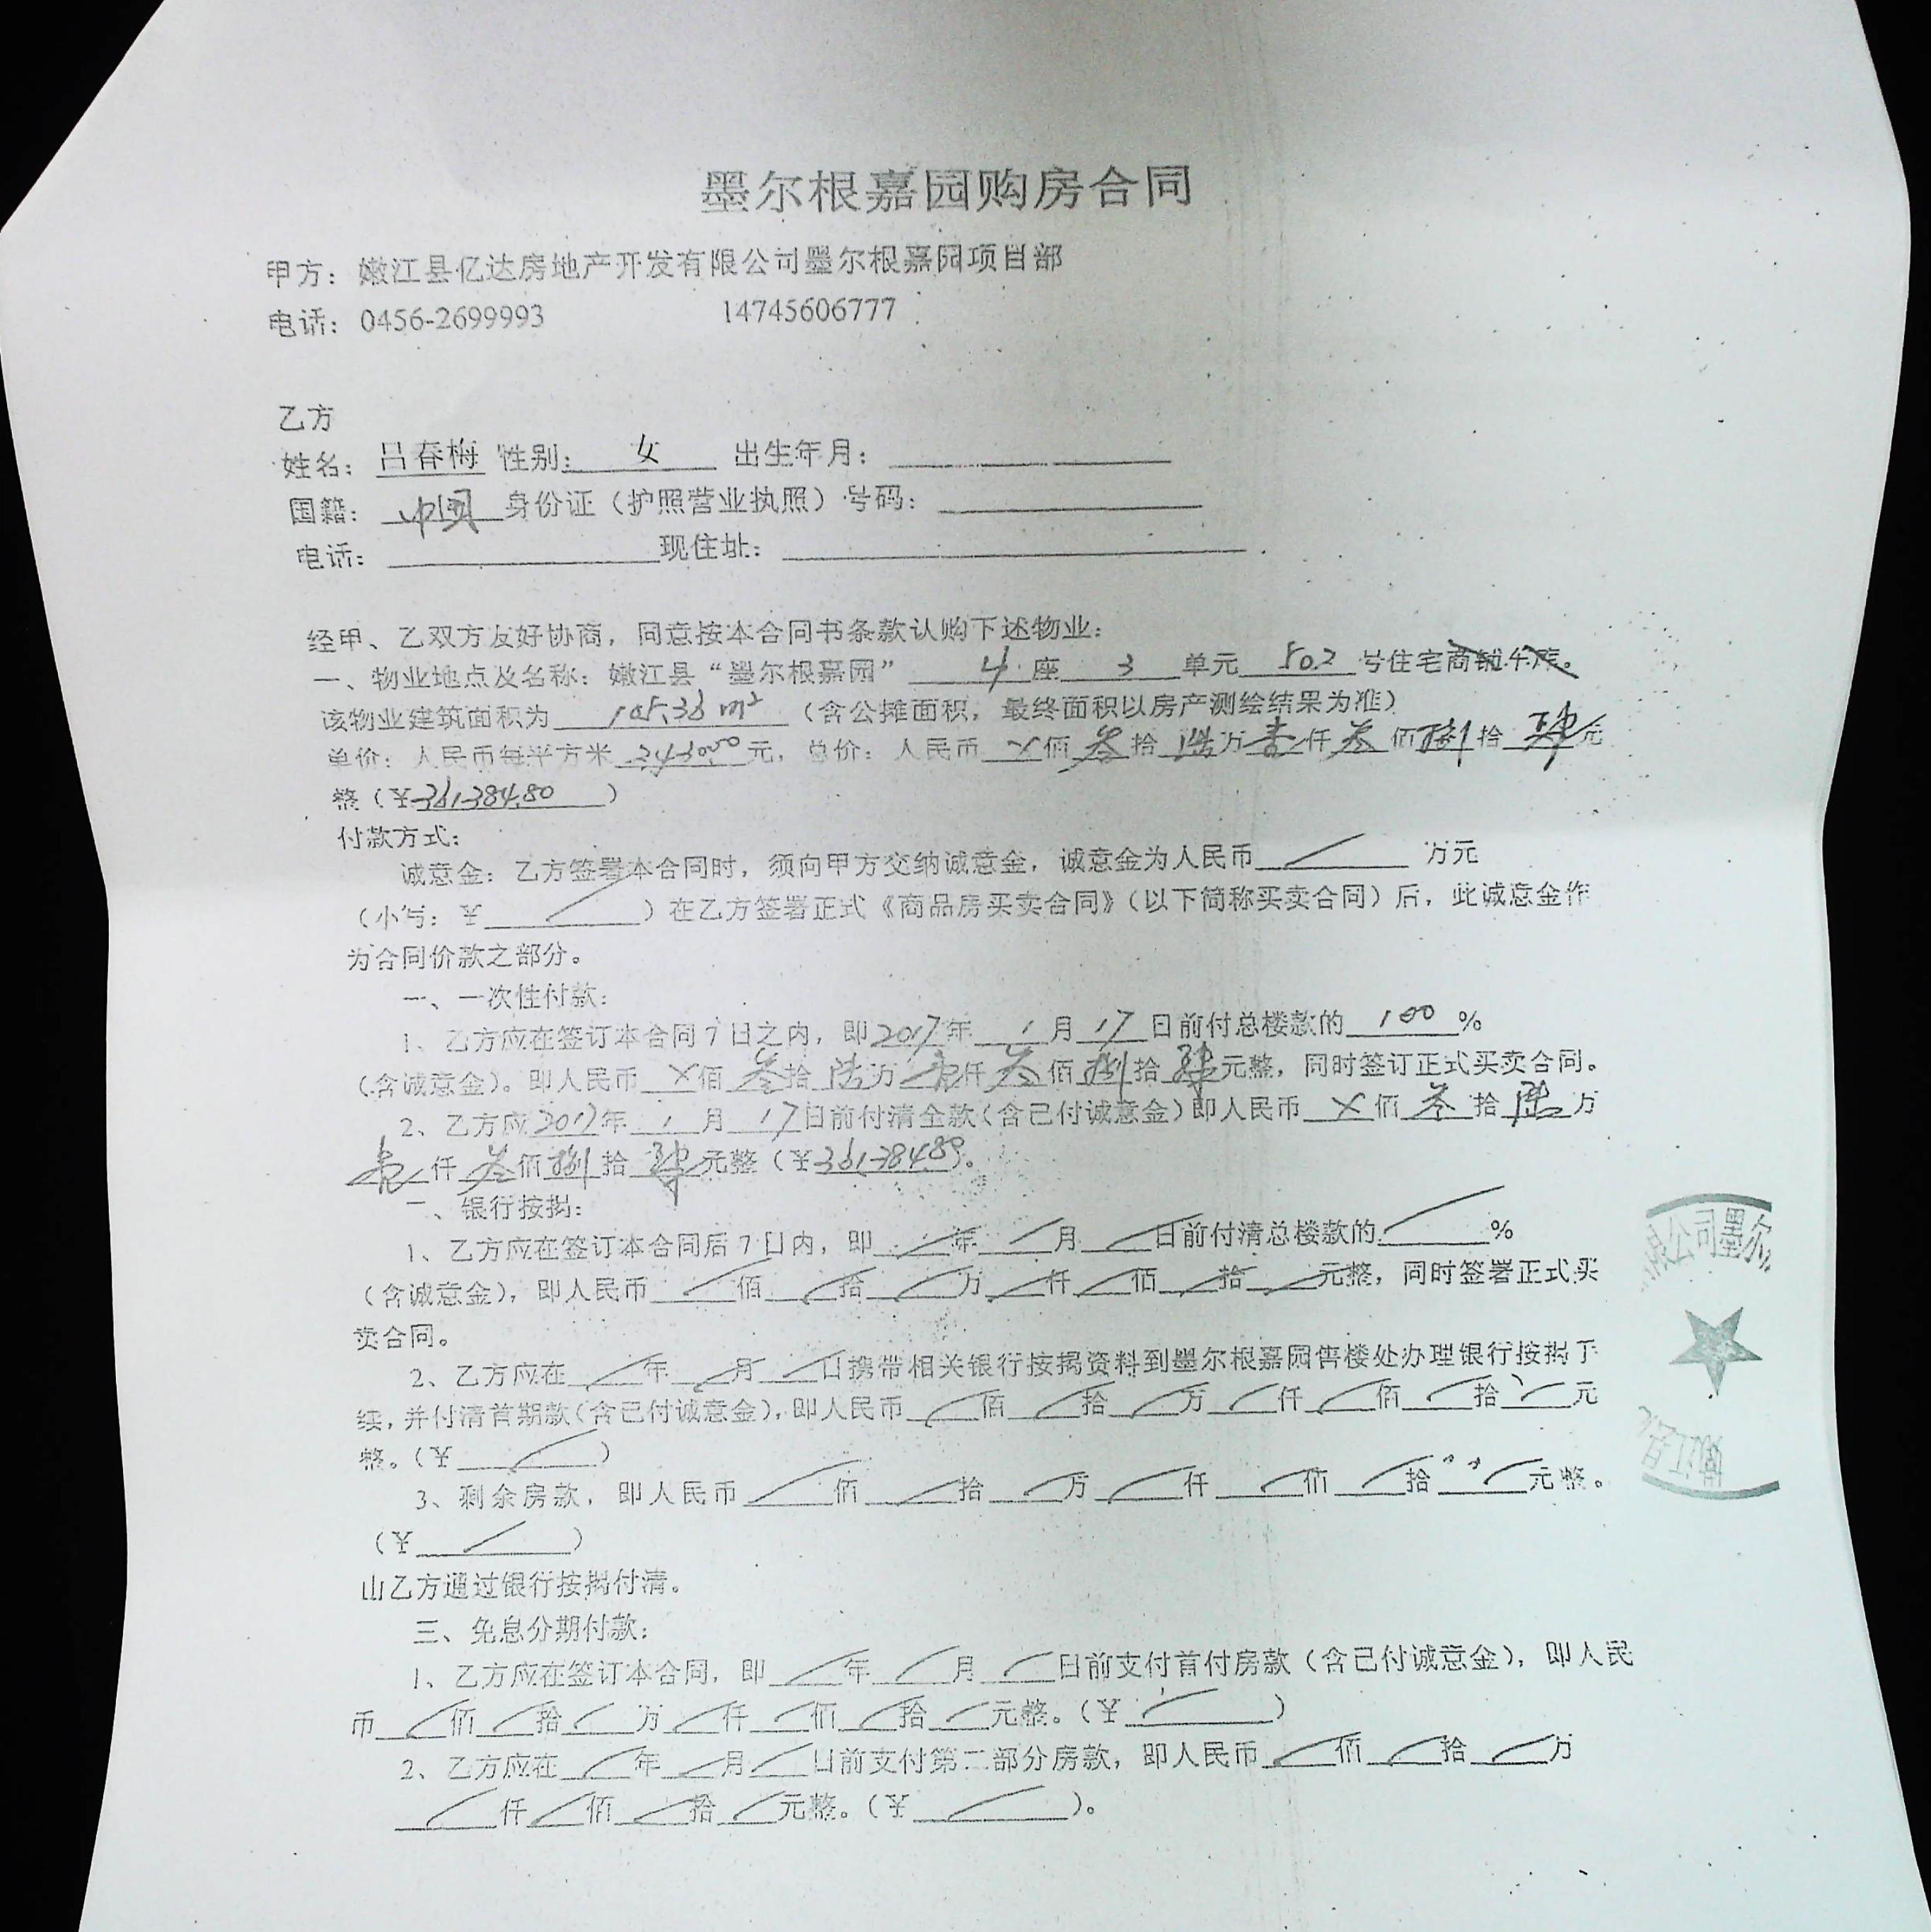 墨尔根嘉园购房合同
甲方：嫩江县亿达房地产开发有限公司墨尔根嘉园项目部
电话：0456-2699993 14745606777
乙方
姓名：吕春梅 性别：女 出生年月：
国籍：中国 身份证（护照营业执照）号码：
电话： 现住址：
经甲、乙双方友好协商，同意按本合同书条款认购下述物业：
一、物业地点及名称：嫩江县“墨尔根嘉园” 4 座 3 单元 502 号住宅商铺车库。
该物业建筑面积为 105.36 m² （含公摊面积，最终面积以房产测绘结果为准）
单价：人民币每平方米 元，总价：人民币 ×佰 叁 拾 陆 万 壹 仟 叁 佰 捌 拾 肆 元
整（¥361384.80）
付款方式：
诚意金：乙方签署本合同时，须向甲方交纳诚意金，诚意金为人民币 万元
（小写：¥ ）在乙方签署正式《商品房买卖合同》（以下简称买卖合同）后，此诚意金作
为合同价款之部分。
一、一次性付款：
1、乙方应在签订本合同7日之内，即2017年 1 月 17 日前付总楼款的 100 %
（含诚意金）。即人民币 ×佰 叁 拾 陆 万 壹 仟 叁 佰 捌 拾 肆 元整，同时签订正式买卖合同。
2、乙方应2017年 1 月 17日前付清全款（含已付诚意金）即人民币 × 佰 叁 拾 陆 万
壹 仟 叁 佰 捌 拾 肆 元整（¥361384.80）。
二、银行按揭：
1、乙方应在签订本合同后7日内，即 年 月 日前付清总楼款的 %
（含诚意金），即人民币 佰 拾 万 仟 佰 拾 元整，同时签署正式买
卖合同。
2、乙方应在 年 月 日携带相关银行按揭资料到墨尔根嘉园售楼处办理银行按揭手
续，并付清首期款（含已付诚意金），即人民币 佰 拾 万 仟 佰 拾 元
整。（¥ ）
3、剩余房款，即人民币 佰 拾 万 仟 佰 拾 元整。
（¥ ）
由乙方通过银行按揭付清。
三、免息分期付款：
1、乙方应在签订本合同，即 年 月 日前支付首付房款（含已付诚意金），即人民
币 佰 拾 万 仟 佰 拾 元整。（¥ ）
2、乙方应在 年 月 日前支付第二部分房款，即人民币 佰 拾 万
仟 佰 拾 元整。（¥ ）。
公司墨尔
嫩江县